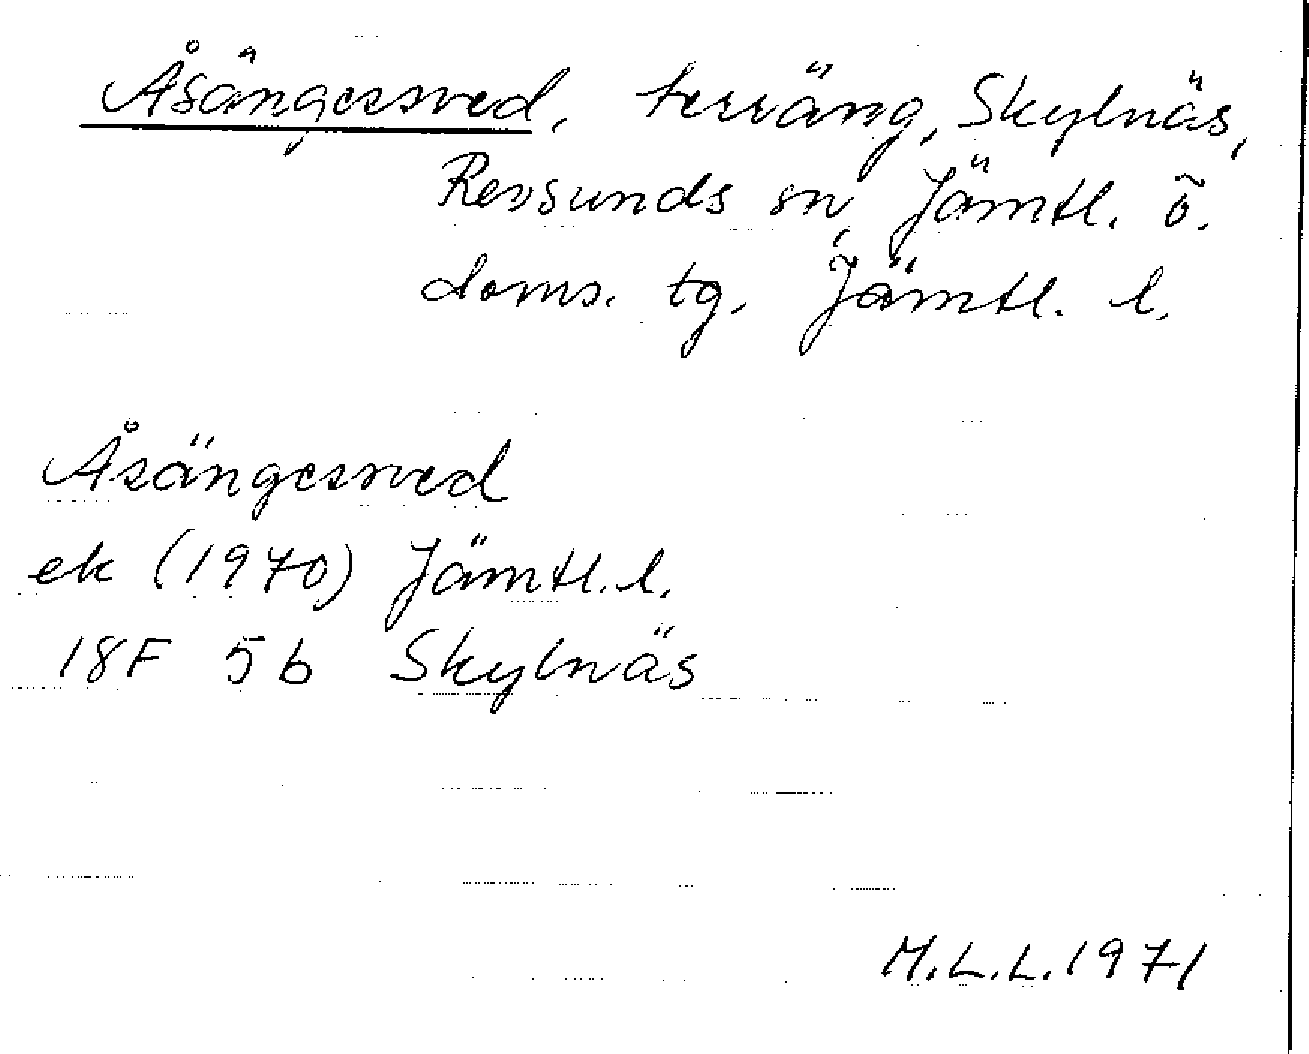 Åsängessved, terräng, Skylnäs,
Revsunds sn, Jämtl. ö.
doms. tg. Jämtl. l.
Åsängessved
ek (1970) Jämtl. l.
18F 5b Skylnäs
M.L.L. 1971